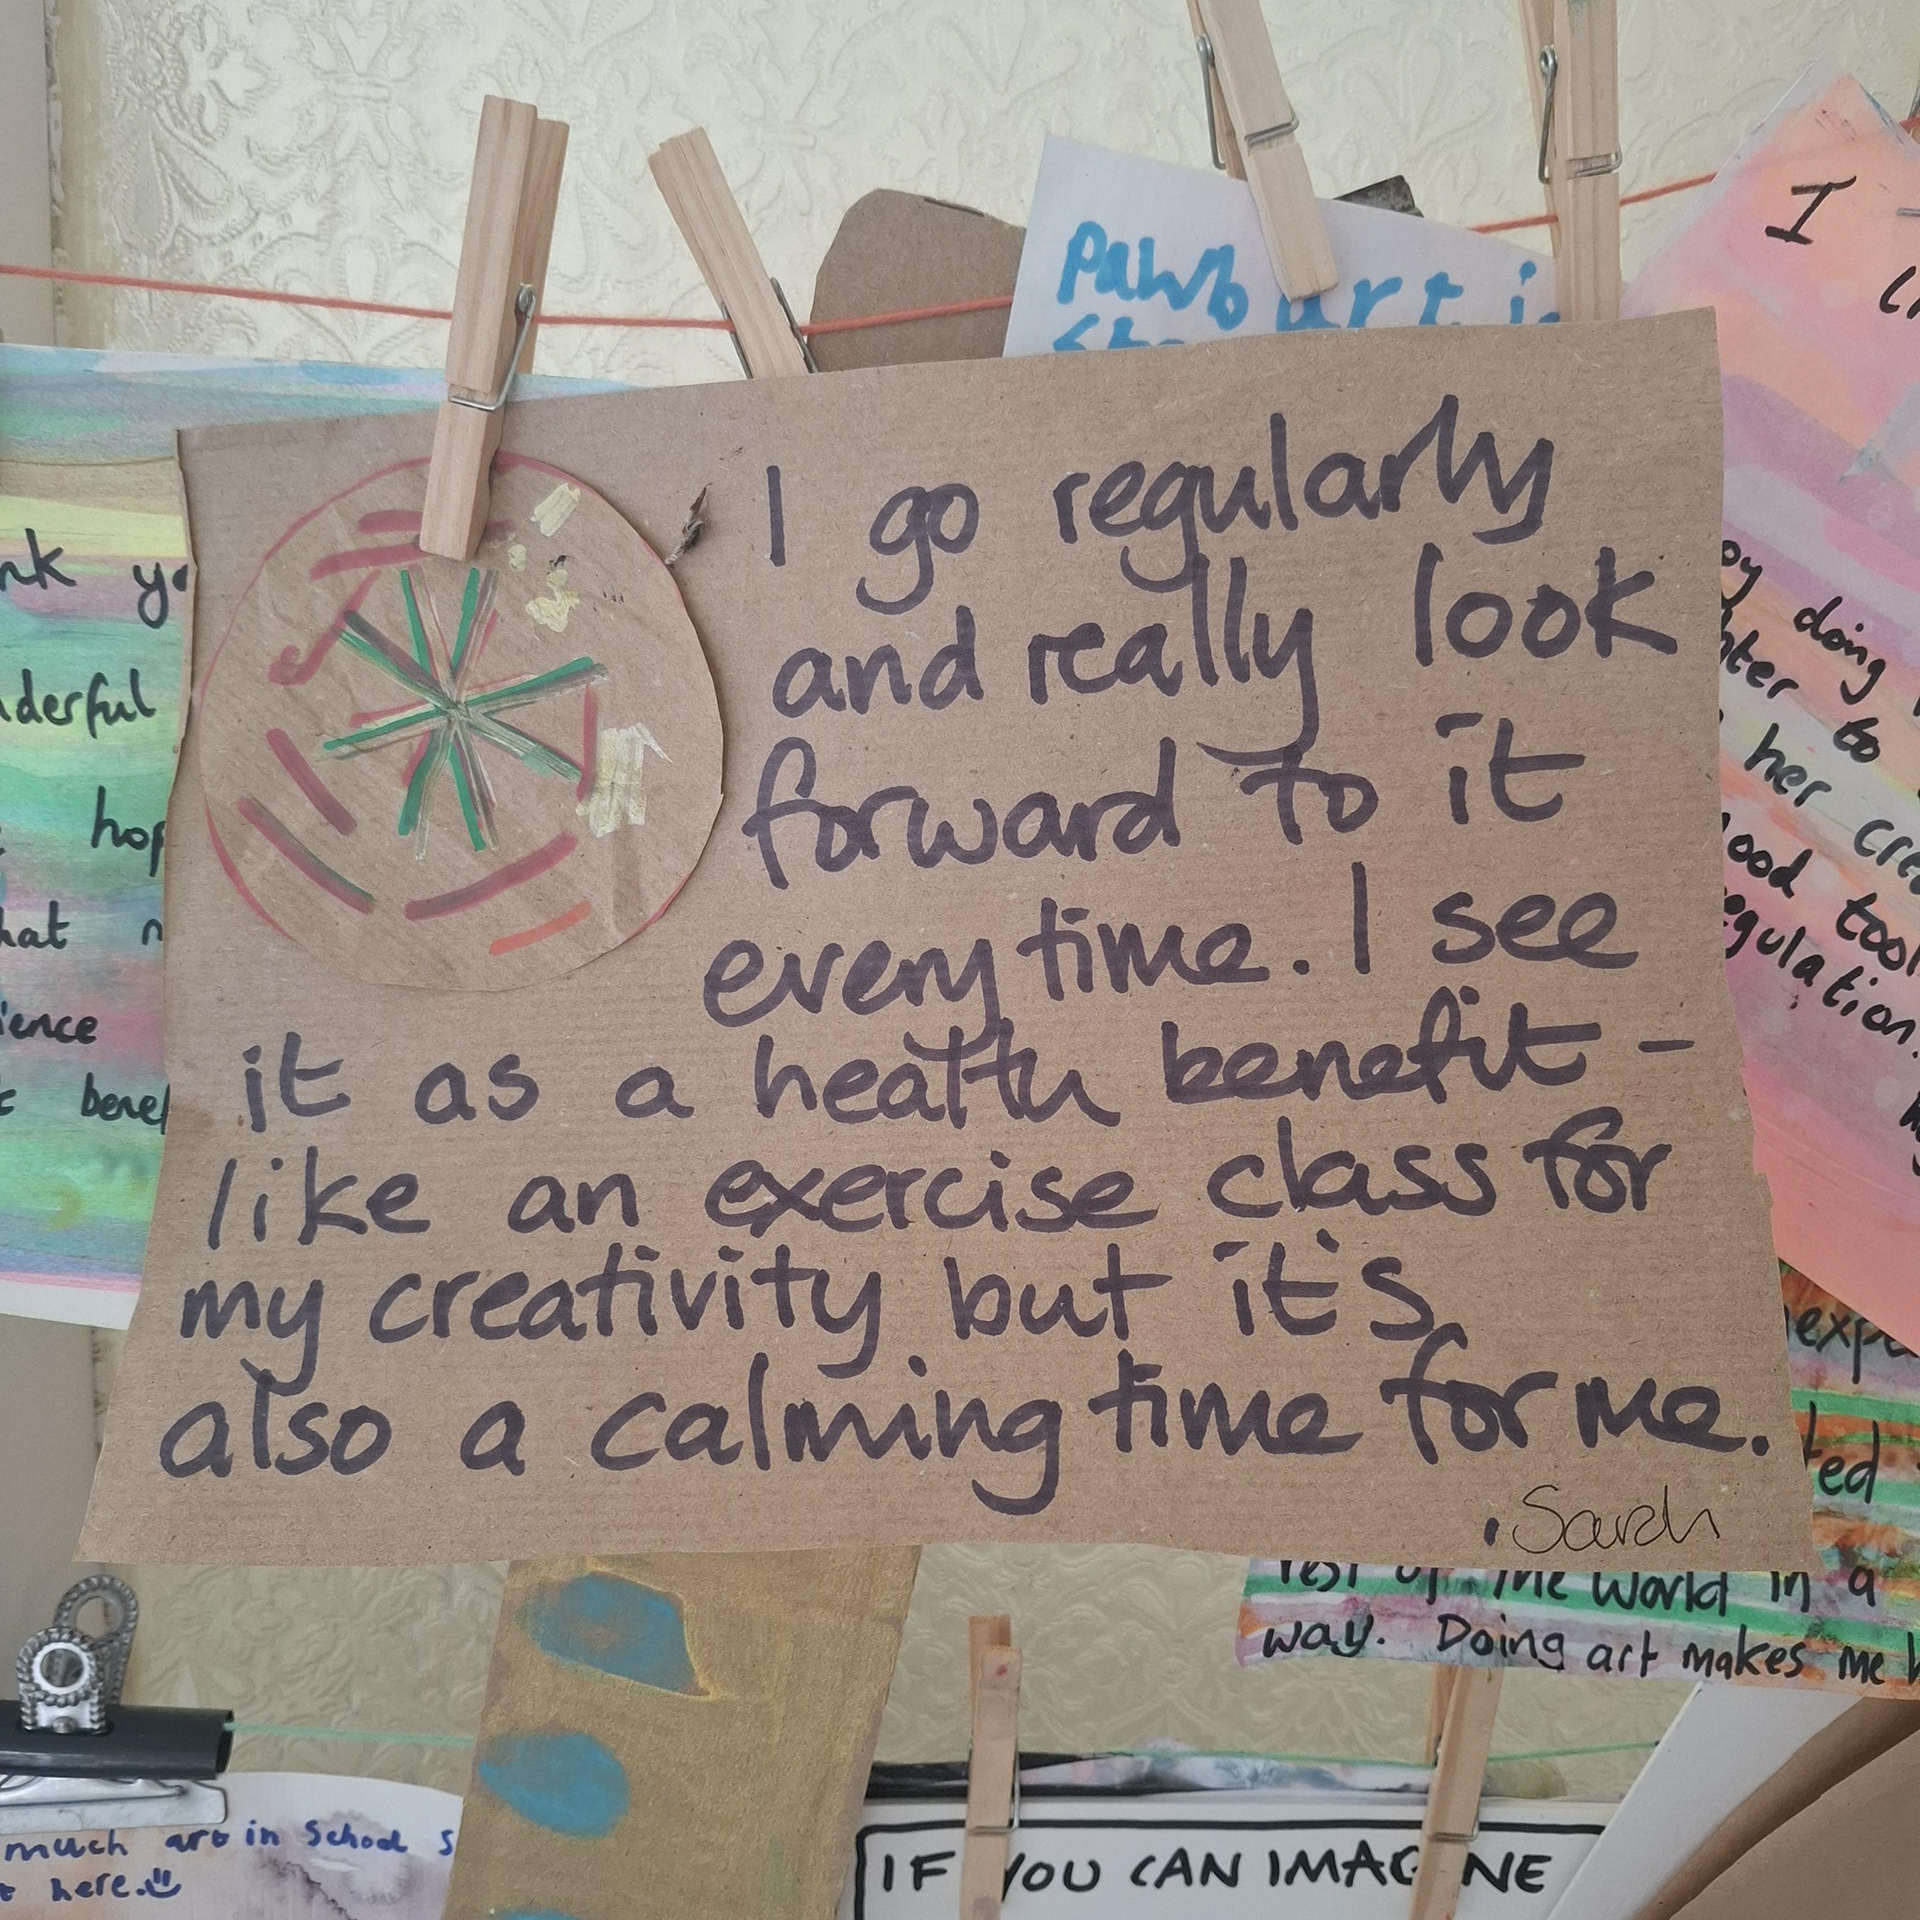 Pawb art i
I
I go regularly
and really look
forward to it
every time. I see
it as a health benefit -
like an exercise class for
my creativity but it's
also a calming time for me.
. Sarah
nk yo
nderful
hop
hat
ience
benef
oy doing
hter to
her crea
ood tool
egulation.
expe
ted
rest of the world in a
way. Doing art makes me
much art in School S
t here.
IF YOU CAN IMAGINE